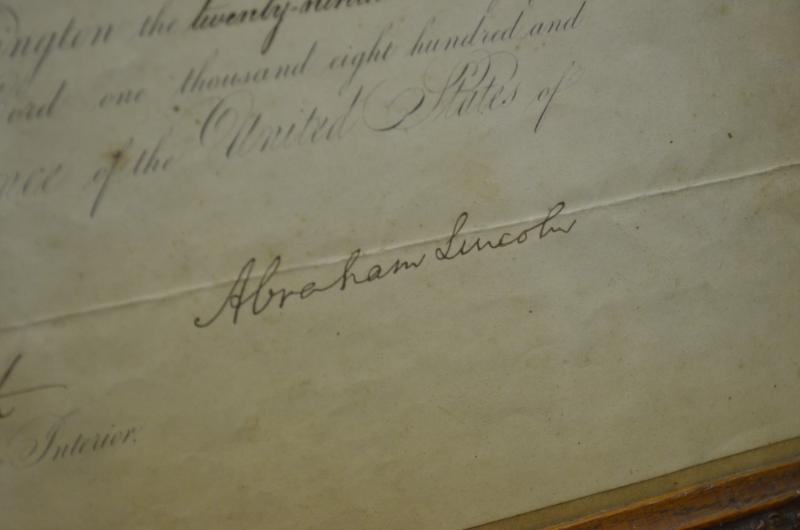 the twenty-nin
one thousand eight hundred and
of the United States of
Abraham Lincoln
Interior.